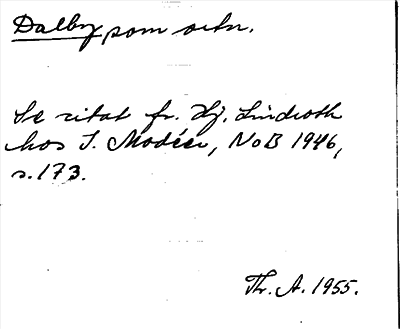 Dalby som ortn.
Se citat fr. Hj. Lindroth
hos I. Modéer, NoB 1946,
s. 173.
Th. A. 1955.